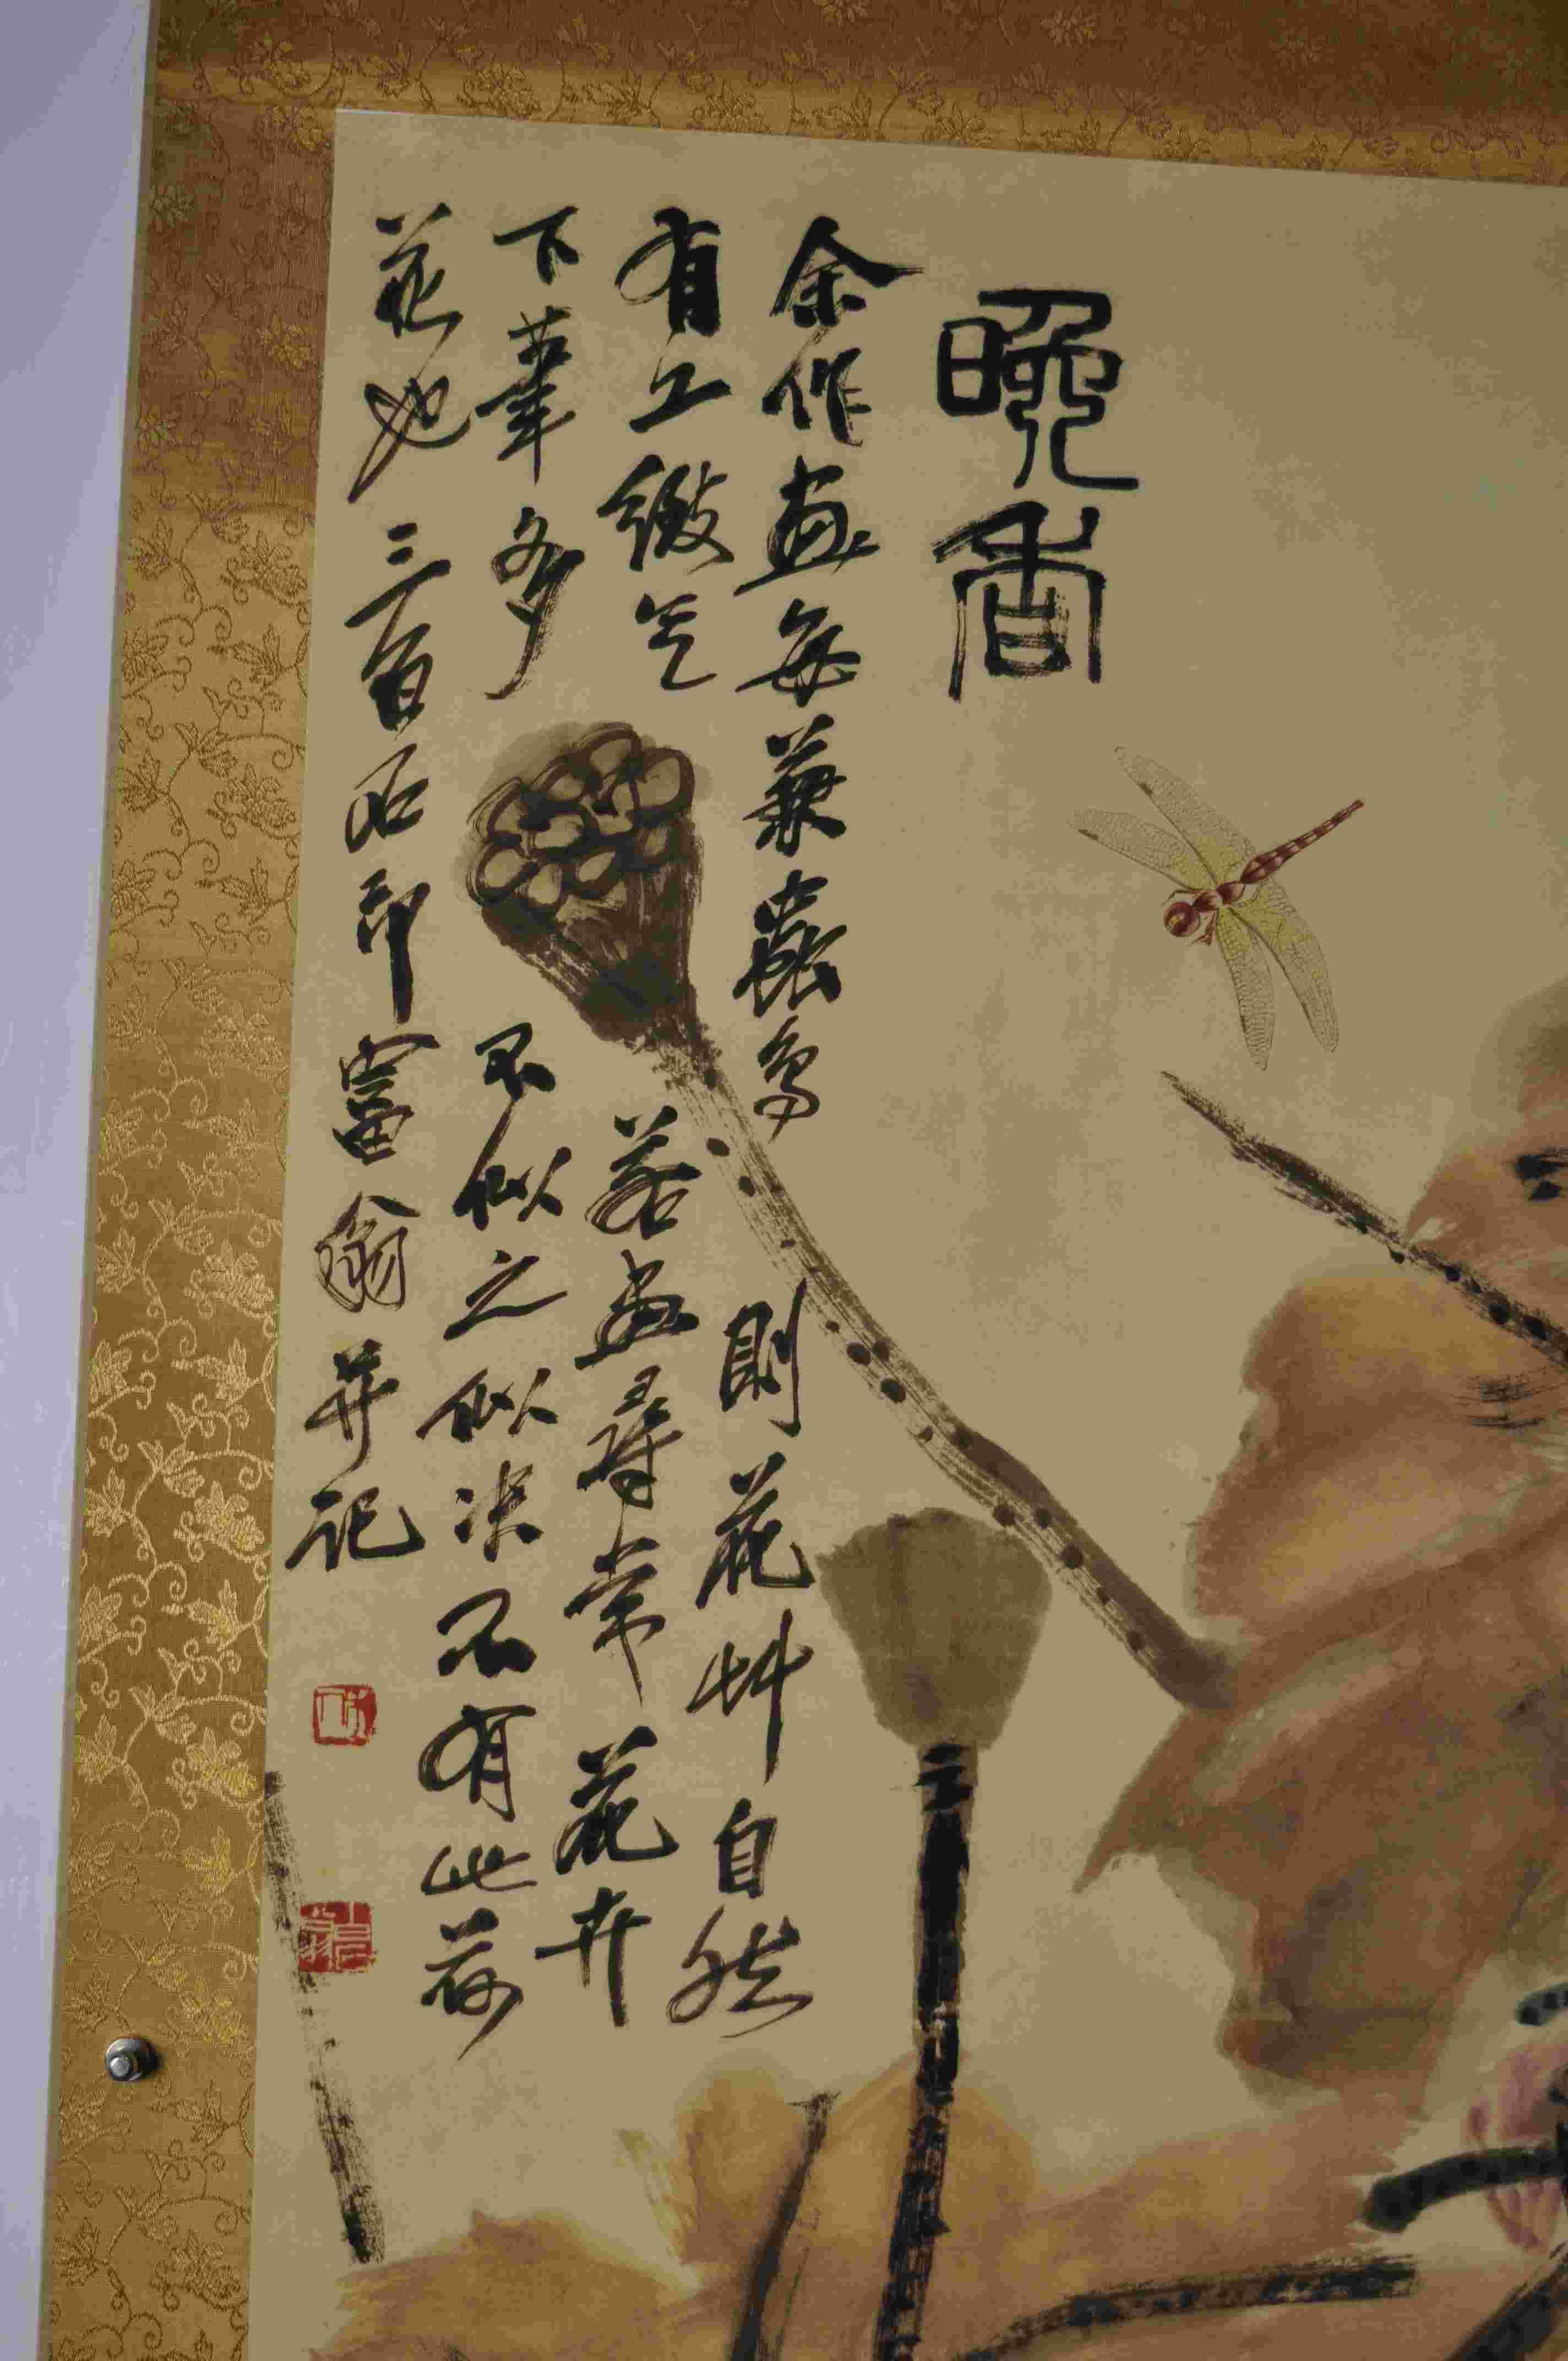 晚香
余作画每兼蟲鳥則花艸自然
有工緻气若画尋常花卉
下筆多不似之似决不有此荷
花也三百石印富翁并记